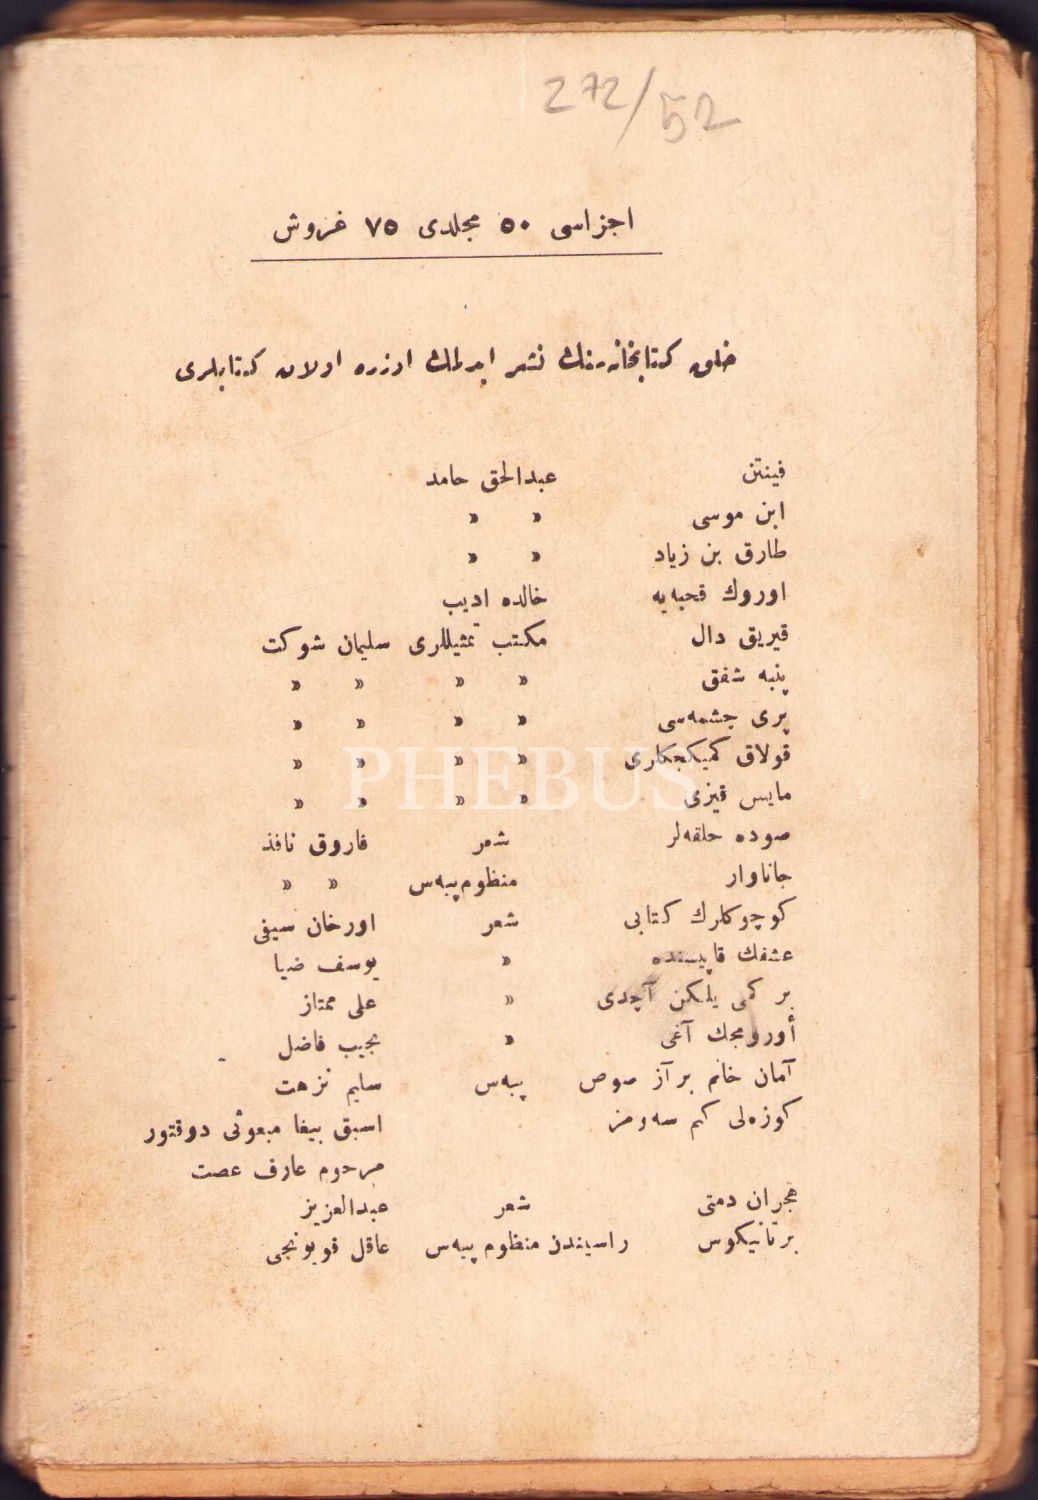 272/52
اجزاسی ٥٠ مجلدی ٧٥ غروش
كتابخانه‌سنك نشر ایده‌جك اوزره اولان كتابلری
فینتن عبدالحق حامد
ابن موسی » »
طارق بن زیاد » »
اوروك قحبه‌یه خالده ادیب
قیریق دال مكتب تمثیللری سلیمان شوكت
پنبه شفق » » » »
پری چشمه‌سی » » » »
قولاق كمیكجكلری » » » »
مایس قیزی » » » »
صوده حلقه‌لر شعر فاروق نافذ
جاناوار منظوم پیه‌س » »
كوچوكلرك كتابی شعر اورخان سیفی
عشقك قاپیسنده » یوسف ضیا
بر كمی یلكن آچدی » علی ممتاز
أورومجك آغی » نجیب فاضل
آمان خانم بر آز صوص پیه‌س سلیم نزهت
كوزه‌لی كم سه‌ومز اسبق بیغا مبعوثی دوقتور
مرحوم عارف عصمت
هجران دمتی شعر عبدالعزیز
برتانیكوس راسیندن منظوم پیه‌س عاقل قویونجی
PHEBUS